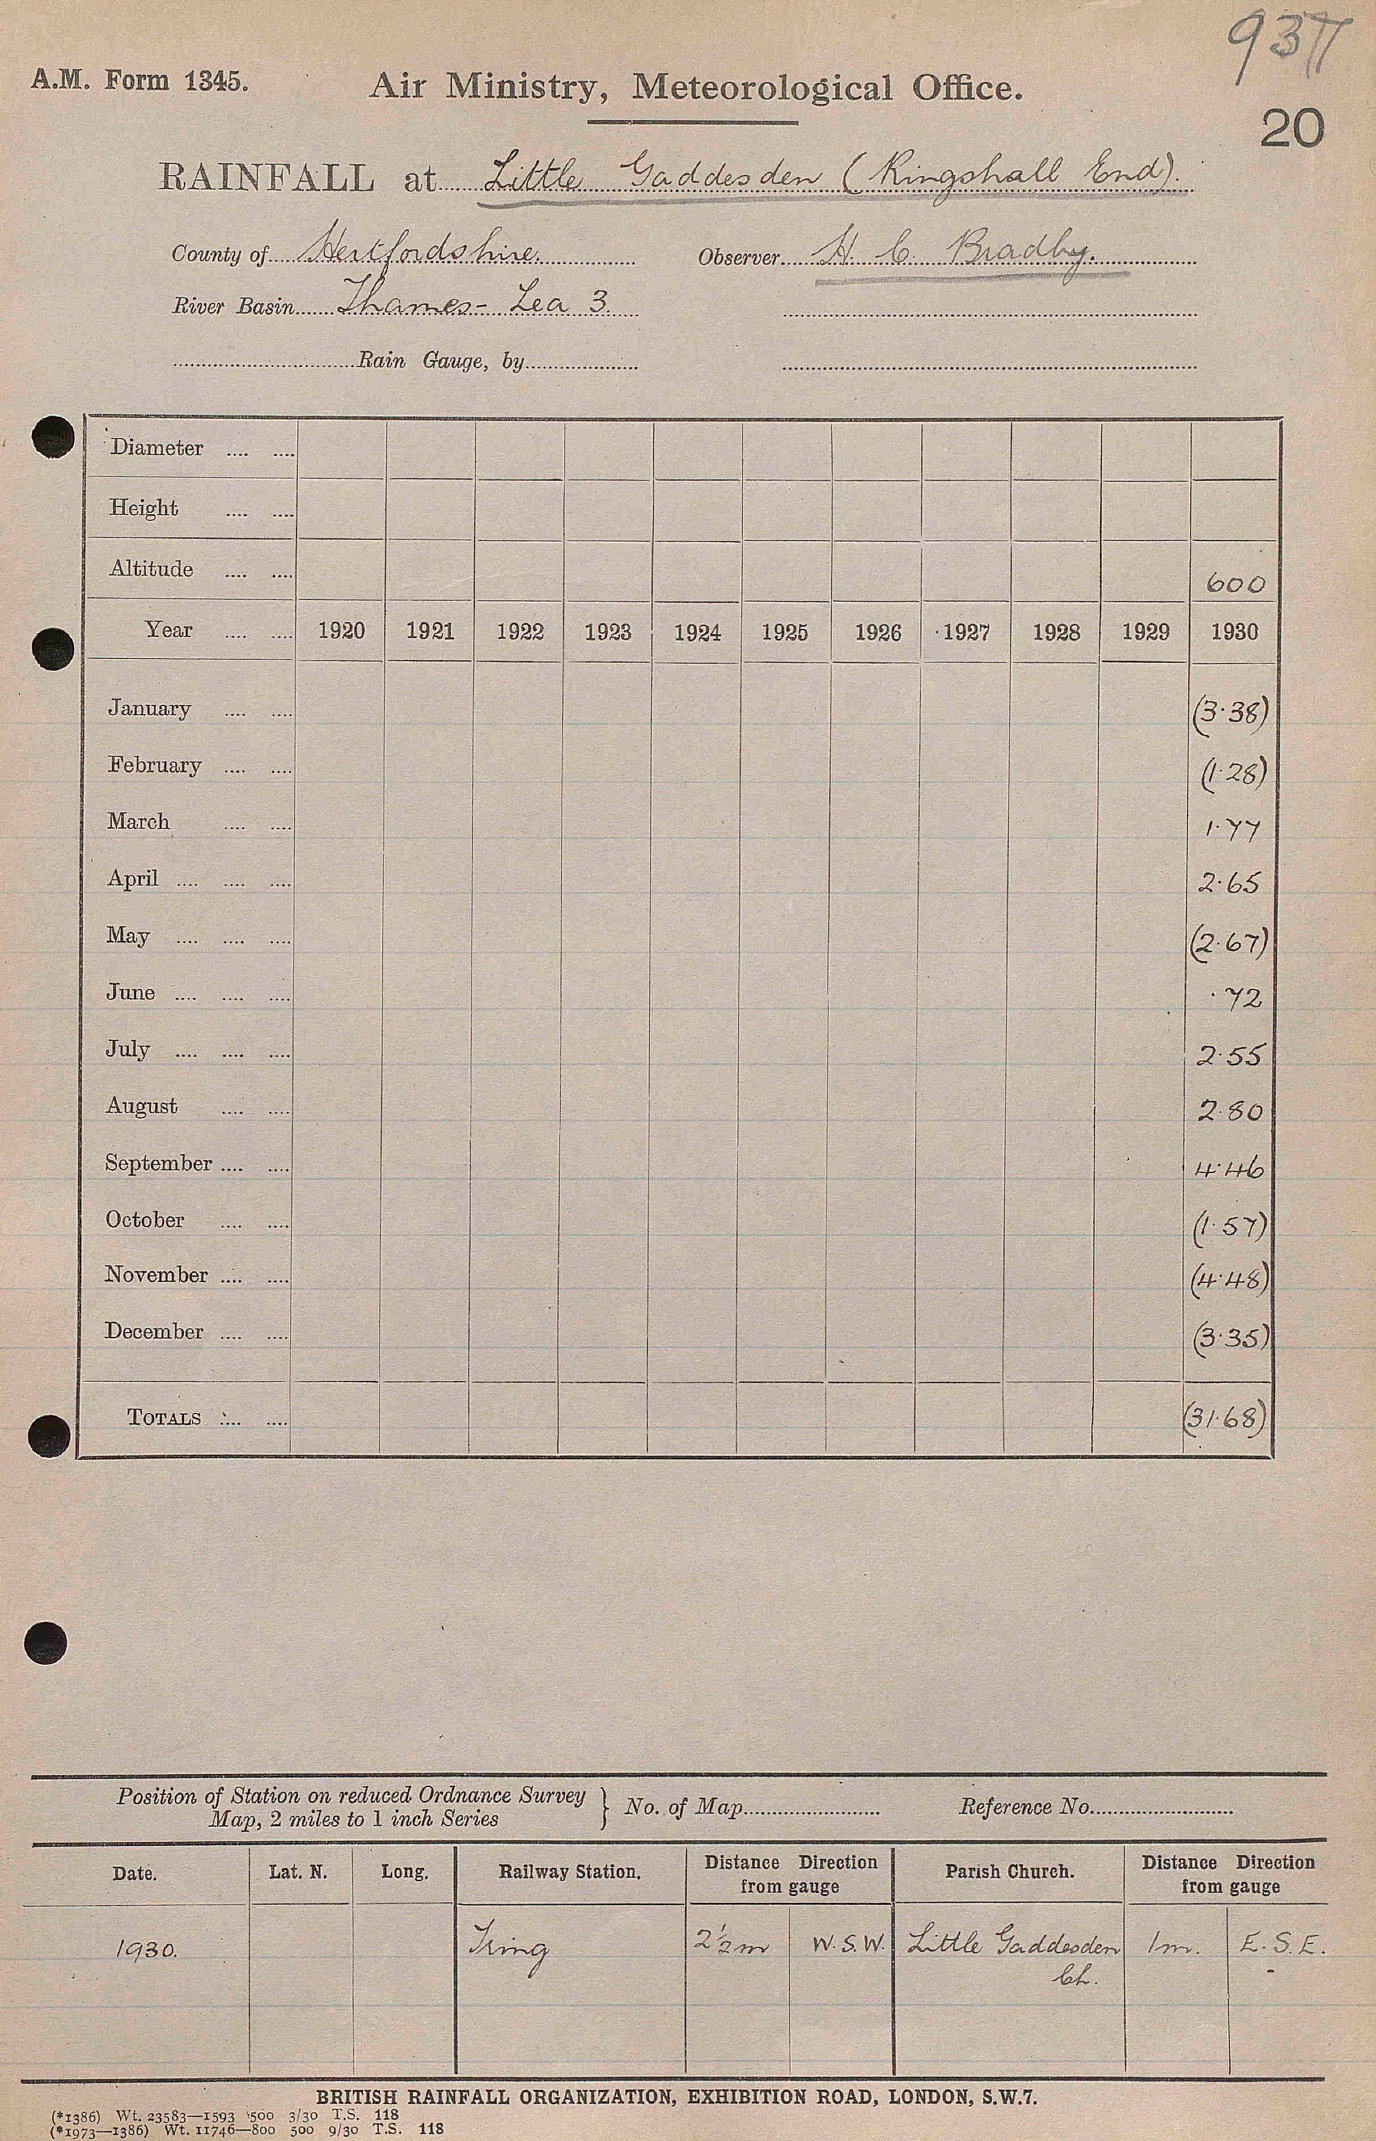 937
A.M. Form 1345. Air Ministry, Meteorological Office.
20
RAINFALL at Little Gaddesden (Ringshall End).
County of Hertfordshire. Observer H. C. Bradby.
River Basin Thames - Lea 3.
Rain Gauge, by
Diameter
Height
Altitude 600
Year 1920 1921 1922 1923 1924 1925 1926 1927 1928 1929 1930
January (3.38)
February (1.28)
March 1.77
April 2.65
May (2.67)
June .72
July 2.55
August 2.80
September 4.46
October (1.57)
November (4.48)
December (3.35)
TOTALS (31.68)
Position of Station on reduced Ordnance Survey
Map, 2 miles to 1 inch Series } No. of Map Reference No.
Date. Lat. N. Long. Railway Station. Distance Direction from gauge Parish Church. Distance Direction from gauge
1930. Tring 2½m W.S.W. Little Gaddesden Ch. 1m. E.S.E.
BRITISH RAINFALL ORGANIZATION, EXHIBITION ROAD, LONDON, S.W.7.
(*1386) Wt. 23583—1593 500 3/30 T.S. 118
(*1973—1386) Wt. 11746—800 500 9/30 T.S. 118